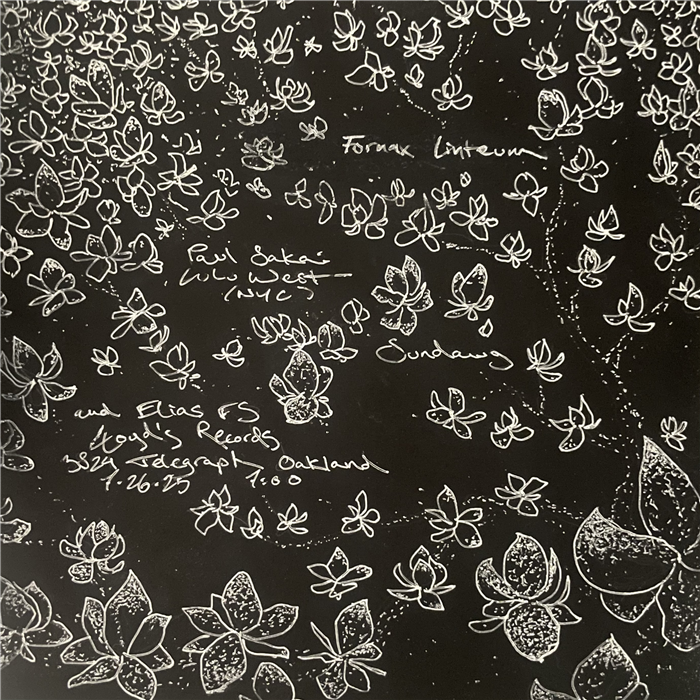 Fornax Linteum
Paul Sakai
Lulu West
(NYC)
Sundawg
and Elias FS
Loyd's Records
3824 Telegraph, Oakland
1.26.25 1:00